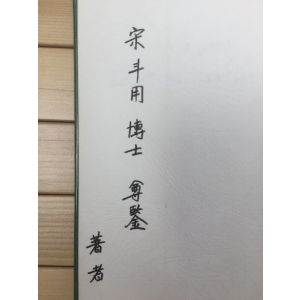 宋斗用 博士 尊鑒
著者